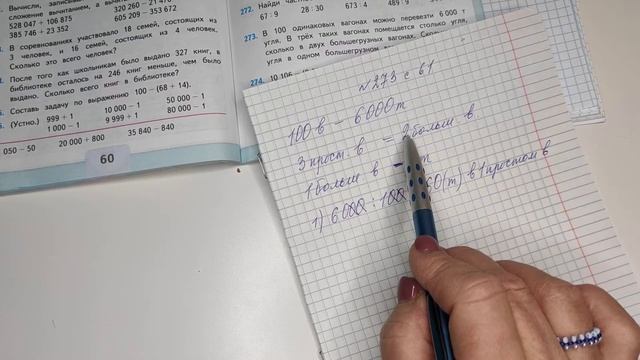 Вычисли, записывая
сложение вычитанием, а вычитание
528 047 + 106 875 320 260 – 21 470
385 746 + 23 352 605 209 – 353 672
В соревнованиях участвовало 18 семей, состоящих из
3 человек, и 16 семей, состоящих из 4 человек.
Сколько это всего человек?
После того как школьникам было выдано 327 книг, в
библиотеке осталось на 246 книг меньше, чем было
выдано. Сколько всего книг в библиотеке?
Составь задачу по выражению 100 – (68 + 14).
(Устно.) 999 + 1 10 000 – 1 50 000 – 1
1 000 – 1 9 999 + 1 80 000 – 1
050 – 50 20 000 + 800 35 840 – 840
60
272. Найди
67 : 9 28 : 30 673 : 4 489 : 9
273. В 100 одинаковых вагонах можно перевезти 6 000 т
угля. В трёх таких вагонах помещается столько угля,
сколько в двух большегрузных вагонах. Сколько
угля в одном большегрузном
274. 10 106
№273 с 61
100 в – 6000 т
3 прост. в = 2 больш в
1 больш в – т
1) 6000 : 100 60 (т) в 1 простом в